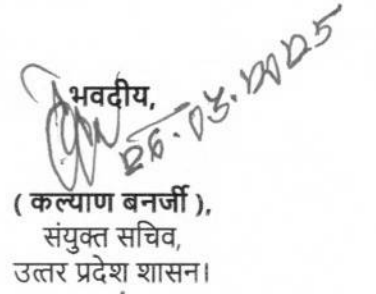 भवदीय,
26.03.2025
( कल्याण बनर्जी ),
संयुक्त सचिव,
उत्तर प्रदेश शासन।